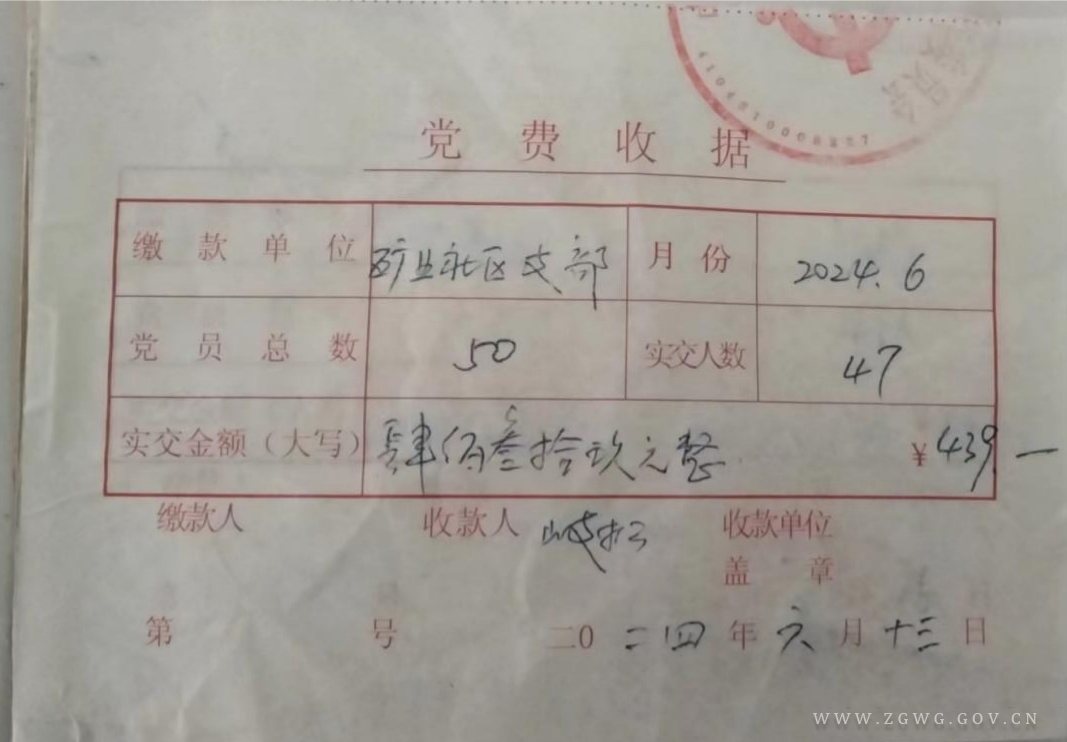 4104810008827
党费收据
缴款单位 矿业社区支部 月份 2024.6
党员总数 50 实交人数 47
实交金额（大写） 肆佰叁拾玖元整 ¥439.一
缴款人 收款人 收款单位
盖章
第 号 二0二四年六月十三日
WWW.ZGWG.GOV.CN